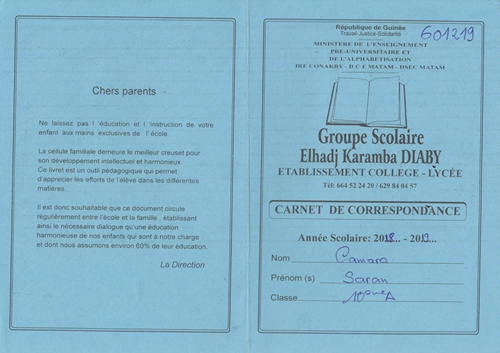 Chers parents
Ne laissez pas l 'éducation et l 'instruction de votre
enfant aux mains exclusives de l' école.
La cellule familiale demeure le meilleur creuset pour
son développement intellectuel et harmonieux
Ce livret est un outil pédagogique qui permet
d'apprécier les efforts de l'élève dans les différentes
matières.
Il est donc souhaitable que ce document circule
régulièrement entre l'école et la famille , établissant
ainsi le nécessaire dialogue qu'une éducation
harmonieuse de nos enfants qui sont à notre charge
et dont nous assumons environ 60% de leur éducation.
La Direction
République de Guinée
Travail-Justice-Solidarité
601219
MINISTERE DE L'ENSEIGNEMENT
PRE-UNIVERSITAIRE ET
DE L'ALPHABETISATION
IRE CONAKRY - D C E MATAM - DSEC MATAM
Groupe Scolaire
Elhadj Karamba DIABY
ETABLISSEMENT COLLEGE - LYCÉE
Tél: 664 52 24 20 / 629 84 04 57
CARNET DE CORRESPONDANCE
Année Scolaire: 2018... - 2019...
Nom Camara
Prénom (s) Saran
Classe 10ème A